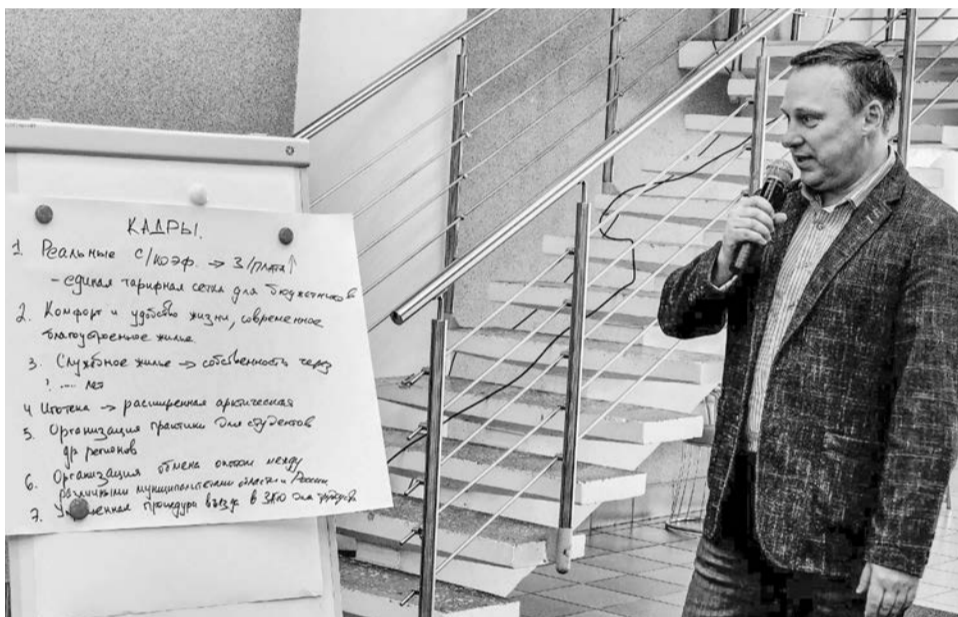 КАДРЫ.
1. Реальные С/коэф. → З/плата ↑
- единая тарифная сетка для бюджетников
2. Комфорт и удобство жизни, современное
благоустроенное жилье
3. Служебное жилье → собственность через
? .... лет
4 Ипотека → расширенная арктическая
5. Организация практики для студентов
др регионов
6. Организация обмена опытом между
различными муниципалитетами области и России
7. процедура въезда в ЗАТО для